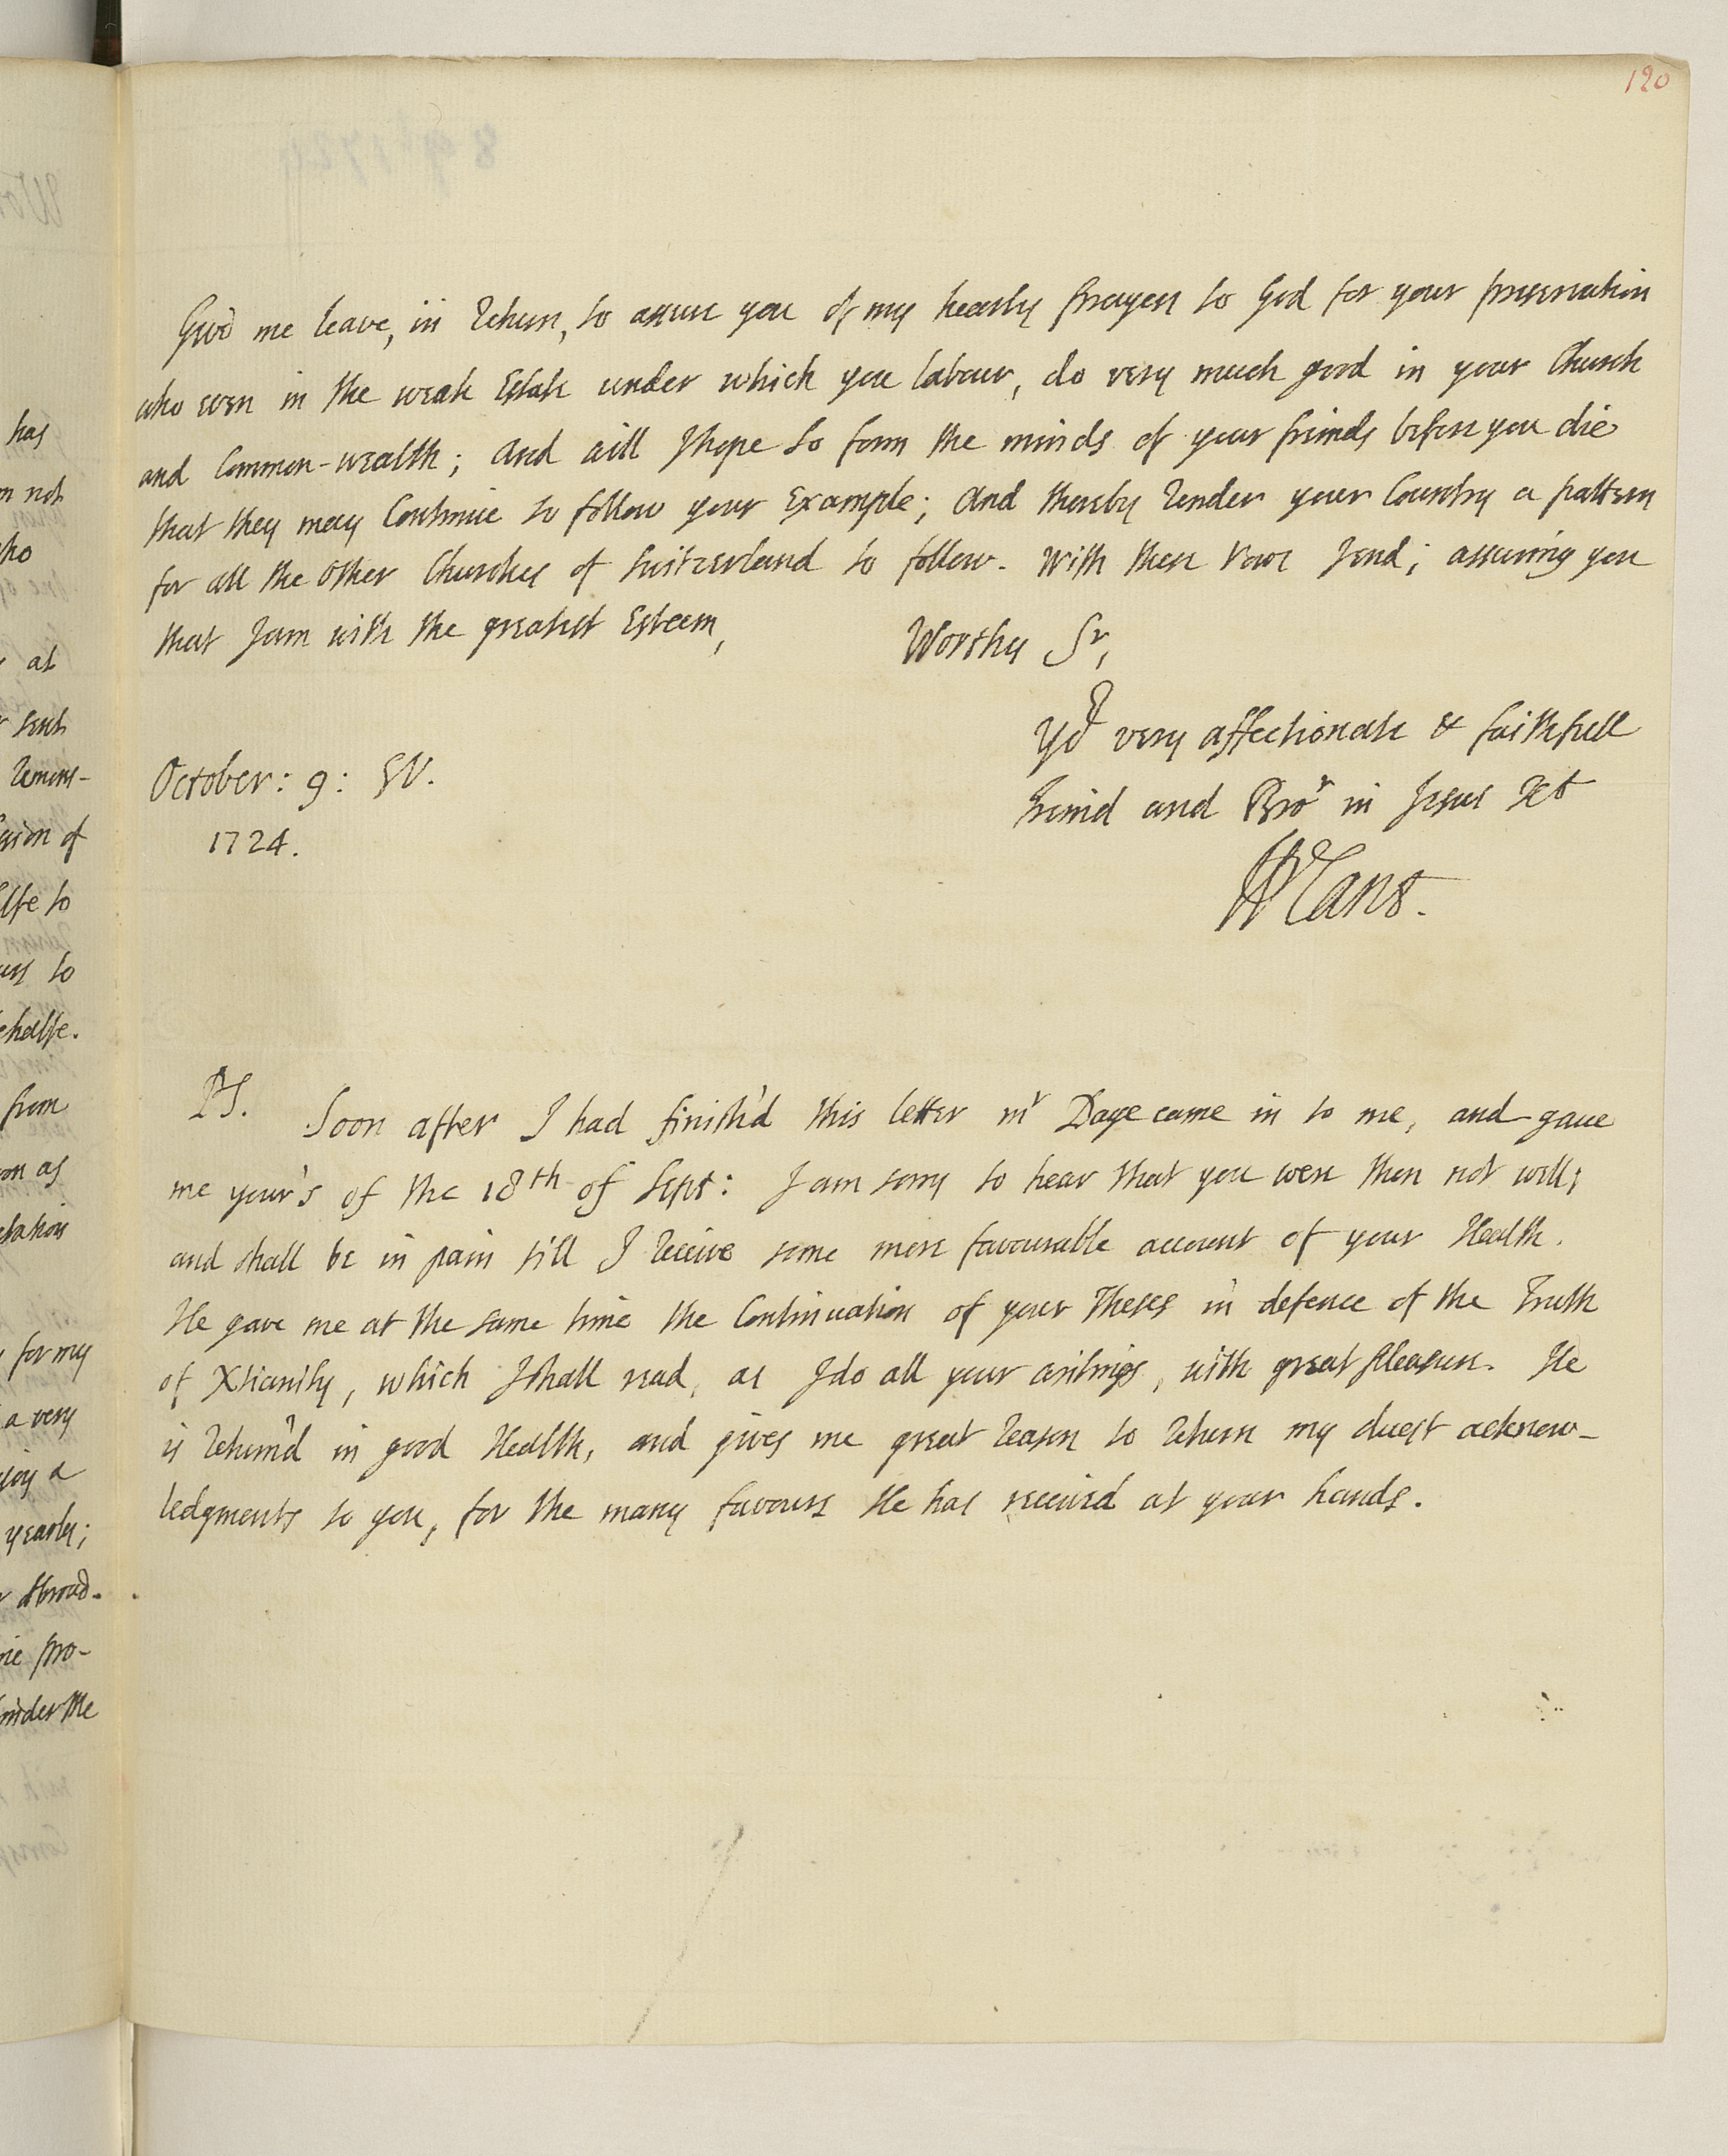 120
Give me leave, in return, to assure you of my hearty prayers to God for your preservation
who even in the weak Estate under which you labour, do very much good in your Church
and Common-wealth; and will I hope so form the minds of your friends before you die
that they may Continue to follow your Example; and thereby render your Country a pattern
for all the other Churches of Switzerland to follow. With these Vows I end; assuring you
that I am with the greatest Esteem,
Worthy Sr,
Yor very affectionate & faithfull
friend and Bror in Jesus Xt
October: 9: SV.
1724.
W Cant.
PS. Soon after I had finish'd this letter mr Daye came in to me, and gave
me your's of the 18th of Sept: I am sorry to hear that you were then not well;
and shall be in pain till I receive some more favourable account of your Health.
He gave me at the same time the Continuation of your Theses in defence of the Truth
of Xtianity, which I shall read, as I do all your writings, with great pleasure. He
is return'd in good Health, and gives me great reason to return my duest acknow-
ledgments to you, for the many favours He has receiv'd at your hands.
has
not
at
sent
of
to
to
from
as
for my
a very
a
yearly;
abroad.
pro-
under the